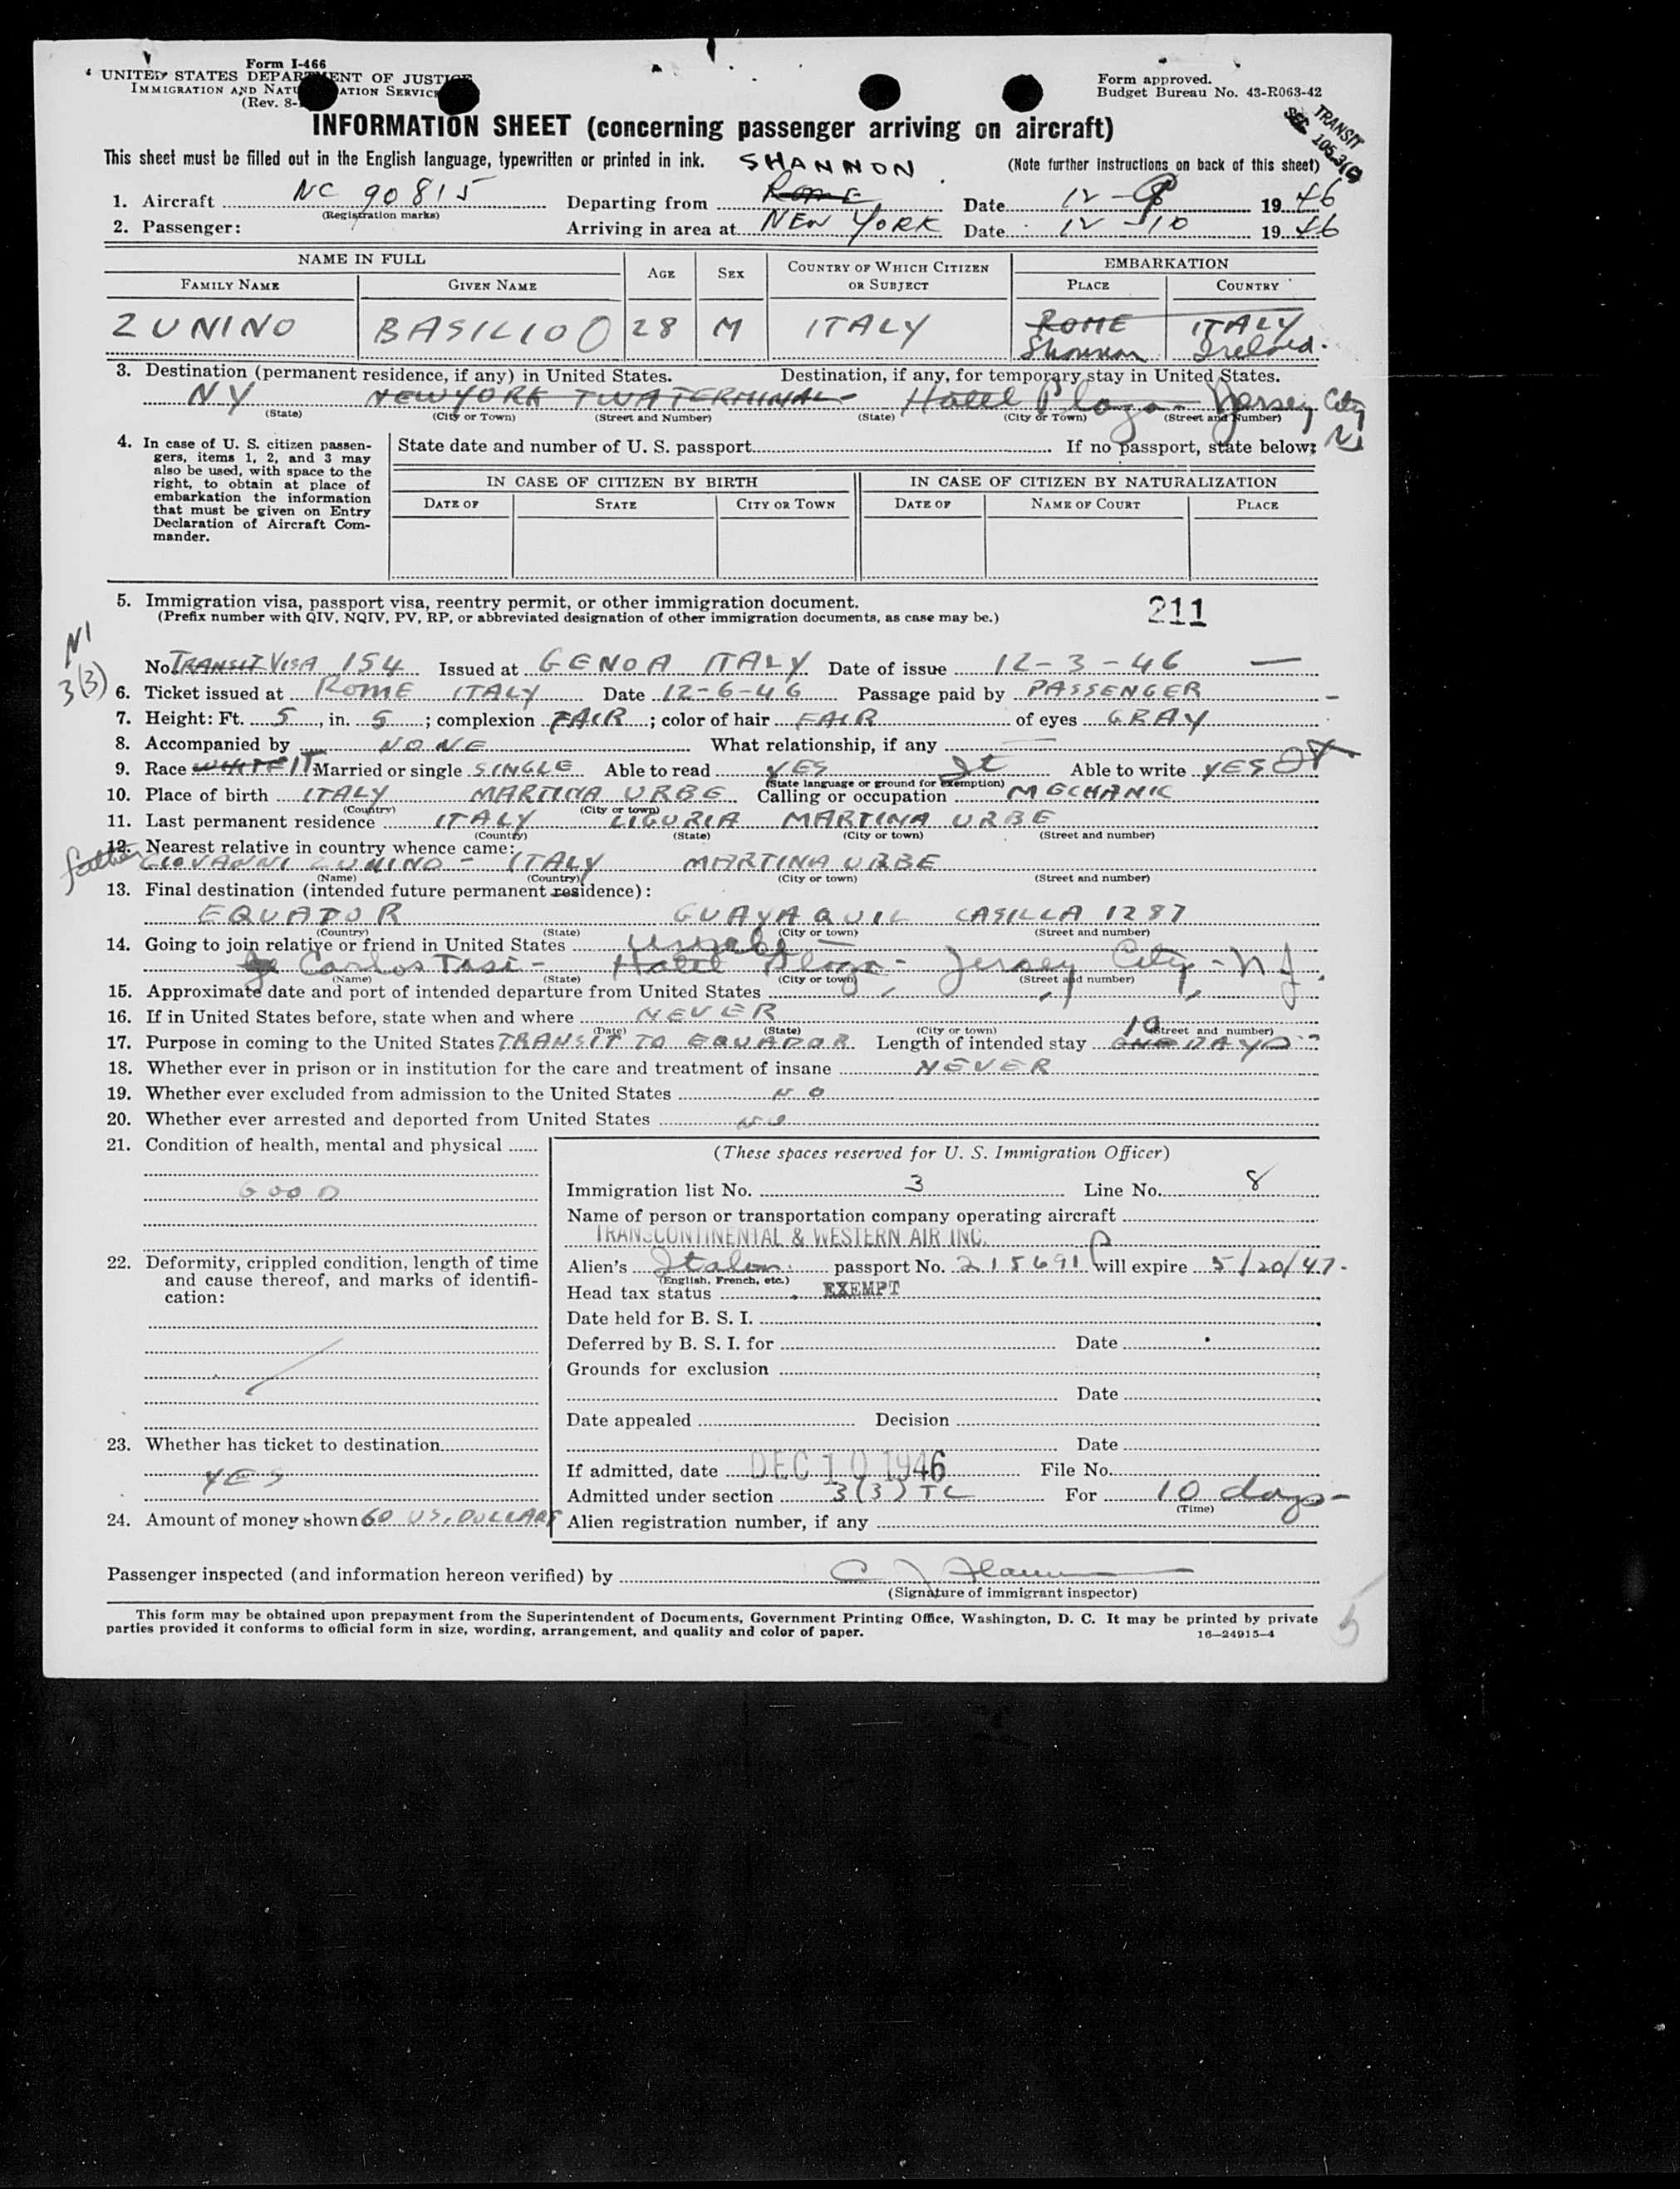 Form I-466
UNITED STATES DEPARTMENT OF JUSTICE
IMMIGRATION AND NATU ATION SERVICE
(Rev. 8-
Form approved.
Budget Bureau No. 43-R063-42
TRANSIT
SEC 105.3(c)
INFORMATION SHEET (concerning passenger arriving on aircraft)
This sheet must be filled out in the English language, typewritten or printed in ink. SHANNON (Note further instructions on back of this sheet)
1. Aircraft NC 90815 Departing from Rome Date 12-8 1946
(Registration marks)
2. Passenger: Arriving in area at NEW YORK Date 12-10 1946
NAME IN FULL AGE SEX COUNTRY OF WHICH CITIZEN OR SUBJECT EMBARKATION
FAMILY NAME GIVEN NAME PLACE COUNTRY
ZUNINO BASILIO 28 M ITALY ROME ITALY
Shannon Ireland.
3. Destination (permanent residence, if any) in United States. Destination, if any, for temporary stay in United States.
NY NEW YORK TWA TERMINAL- Hotel Plaza - Jersey City NJ
(State) (City or Town) (Street and Number) (State) (City or Town) (Street and Number)
4. In case of U. S. citizen passen-
gers, items 1, 2, and 3 may
also be used, with space to the
right, to obtain at place of
embarkation the information
that must be given on Entry
Declaration of Aircraft Com-
mander.
State date and number of U. S. passport If no passport, state below:
IN CASE OF CITIZEN BY BIRTH IN CASE OF CITIZEN BY NATURALIZATION
DATE OF STATE CITY OR TOWN DATE OF NAME OF COURT PLACE
5. Immigration visa, passport visa, reentry permit, or other immigration document. 211
(Prefix number with QIV, NQIV, PV, RP, or abbreviated designation of other immigration documents, as case may be.)
NI
3(3)
No. TRANSIT VISA 154 Issued at GENOA ITALY Date of issue 12-3-46 —
6. Ticket issued at ROME ITALY Date 12-6-46 Passage paid by PASSENGER
7. Height: Ft. 5, in. 5; complexion FAIR; color of hair FAIR of eyes GRAY
8. Accompanied by NONE What relationship, if any —
9. Race WHITE IT Married or single SINGLE Able to read YES It Able to write YES
(State language or ground for exemption)
10. Place of birth ITALY MARTINA URBE Calling or occupation MECHANIC
(Country) (City or town)
11. Last permanent residence ITALY LIGURIA MARTINA URBE
(Country) (State) (City or town) (Street and number)
12. Nearest relative in country whence came:
father GIOVANNI ZUNINO - ITALY MARTINA URBE
(Name) (Country) (City or town) (Street and number)
13. Final destination (intended future permanent residence):
EQUADOR GUAYAQUIL CASILLA 1287
(Country) (State) (City or town) (Street and number)
14. Going to join relative or friend in United States
Carlos Tasi - Hotel Plaza - Jersey City - NJ.
(Name) (State) (City or town) (Street and number)
15. Approximate date and port of intended departure from United States
16. If in United States before, state when and where NEVER
(Date) (State) (City or town) (Street and number)
17. Purpose in coming to the United States TRANSIT TO EQUADOR Length of intended stay 10 ONE DAYS
18. Whether ever in prison or in institution for the care and treatment of insane NEVER
19. Whether ever excluded from admission to the United States NO
20. Whether ever arrested and deported from United States NO
21. Condition of health, mental and physical
GOOD
22. Deformity, crippled condition, length of time
and cause thereof, and marks of identifi-
cation:
23. Whether has ticket to destination
YES
24. Amount of money shown 60 US. DOLLARS
(These spaces reserved for U. S. Immigration Officer)
Immigration list No. 3 Line No. 8
Name of person or transportation company operating aircraft
TRANSCONTINENTAL & WESTERN AIR INC.
Alien's Italian passport No. 215691 P will expire 5/20/47.
(English, French, etc.)
Head tax status EXEMPT
Date held for B. S. I.
Deferred by B. S. I. for Date
Grounds for exclusion
Date
Date appealed Decision
Date
If admitted, date DEC 10 1946 File No.
Admitted under section 3(3) TC For 10 days-
(Time)
Alien registration number, if any
Passenger inspected (and information hereon verified) by
(Signature of immigrant inspector)
This form may be obtained upon prepayment from the Superintendent of Documents, Government Printing Office, Washington, D. C. It may be printed by private
parties provided it conforms to official form in size, wording, arrangement, and quality and color of paper. 16—24915-4
5